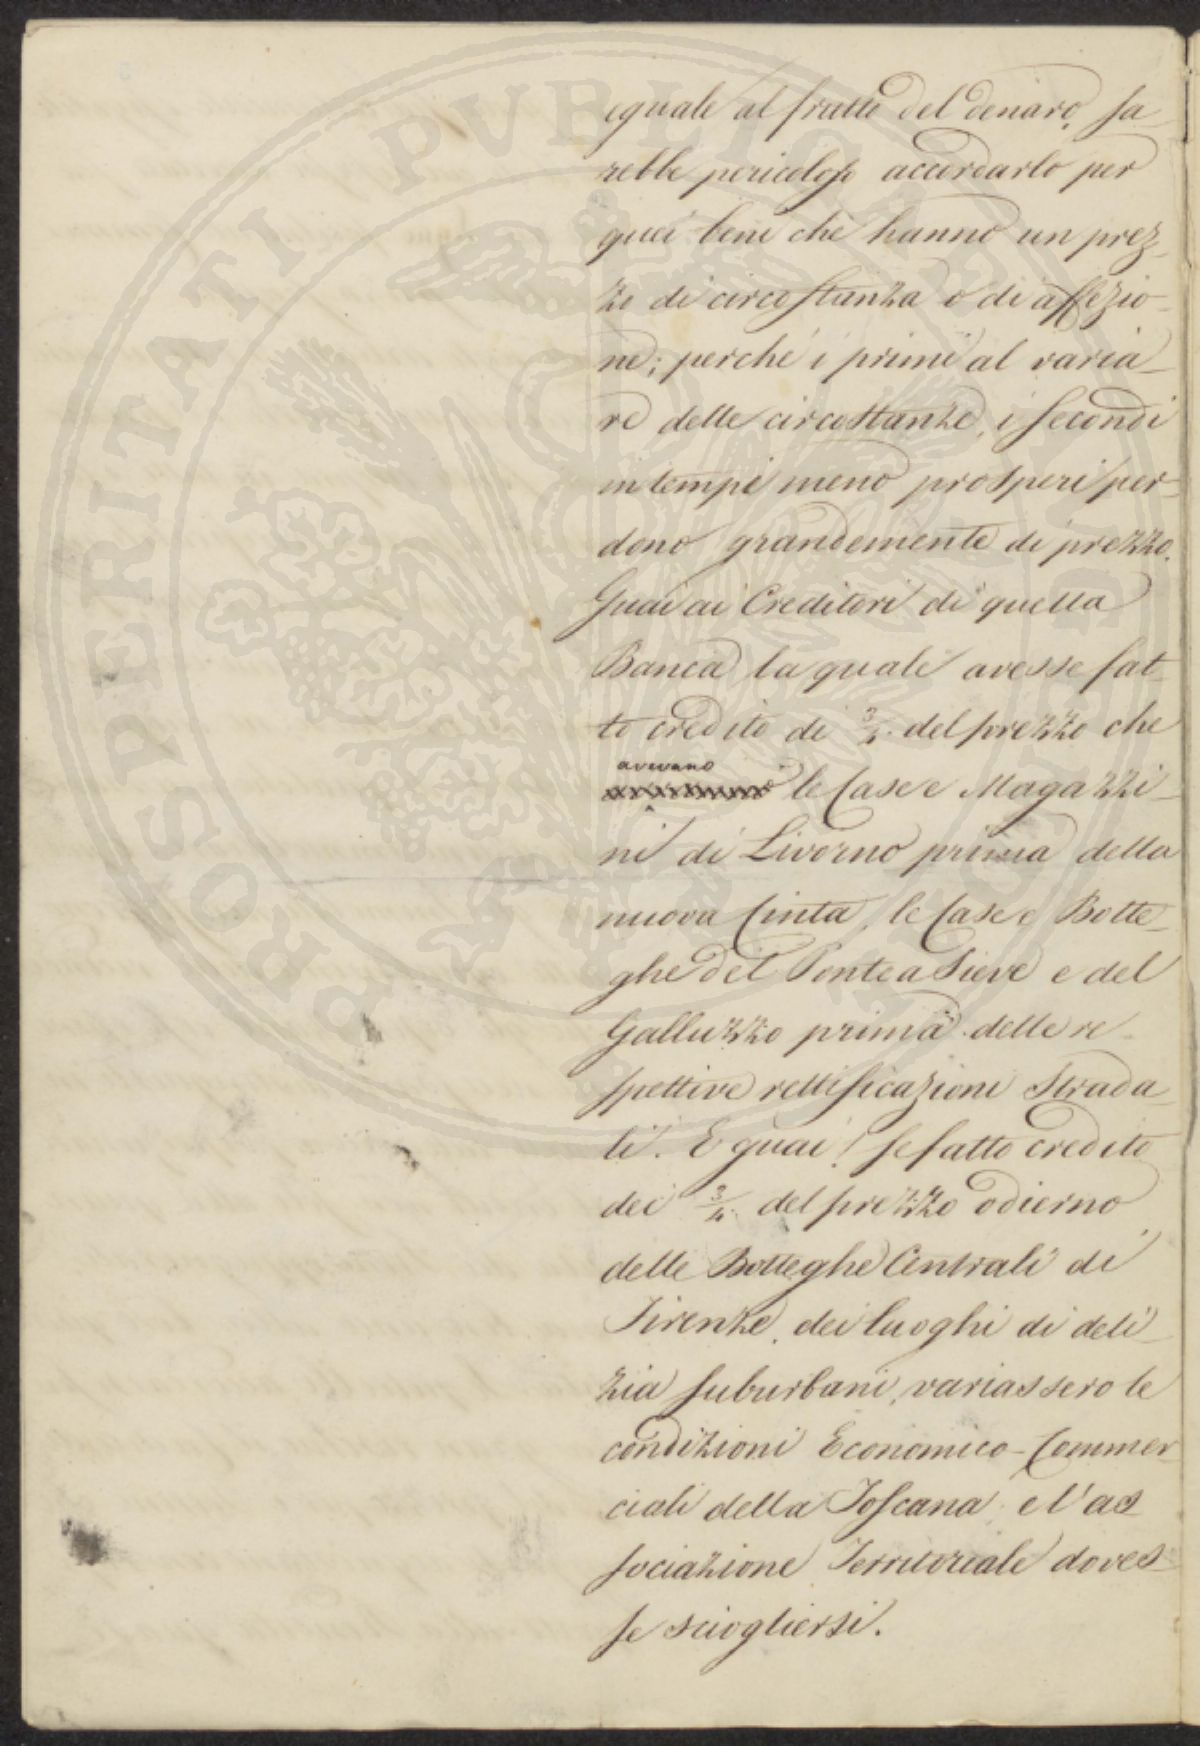 eguale al frutto del denaro, sa-
rebbe pericoloso accordarlo per
quei beni che hanno un prez-
zo di circostanza o di affezio-
ne; perchè i primi al varia-
re delle circostanze, i secondi
in tempi meno prosperi per-
dono grandemente di prezzo.
Guai ai Creditori di quella
Banca la quale avesse fat-
to credito di 3/4. del prezzo che
avevano
le Case e Magazzi-
ni di Livorno prima della
nuova Cinta, le Case e Botte-
ghe del Ponte a Sieve e del
Galluzzo prima delle re-
spettive rettificazioni Strada-
li. E guai! se fatto credito
dei 3/4. del prezzo odierno
delle Botteghe Centrali di
Firenze, dei luoghi di deli-
zia suburbani, variassero le
condizioni Economico-Commer-
ciali della Toscana, e l'as-
sociazione Territoriale doves-
se sciogliersi.
PROSPERITATI PVBLICAE